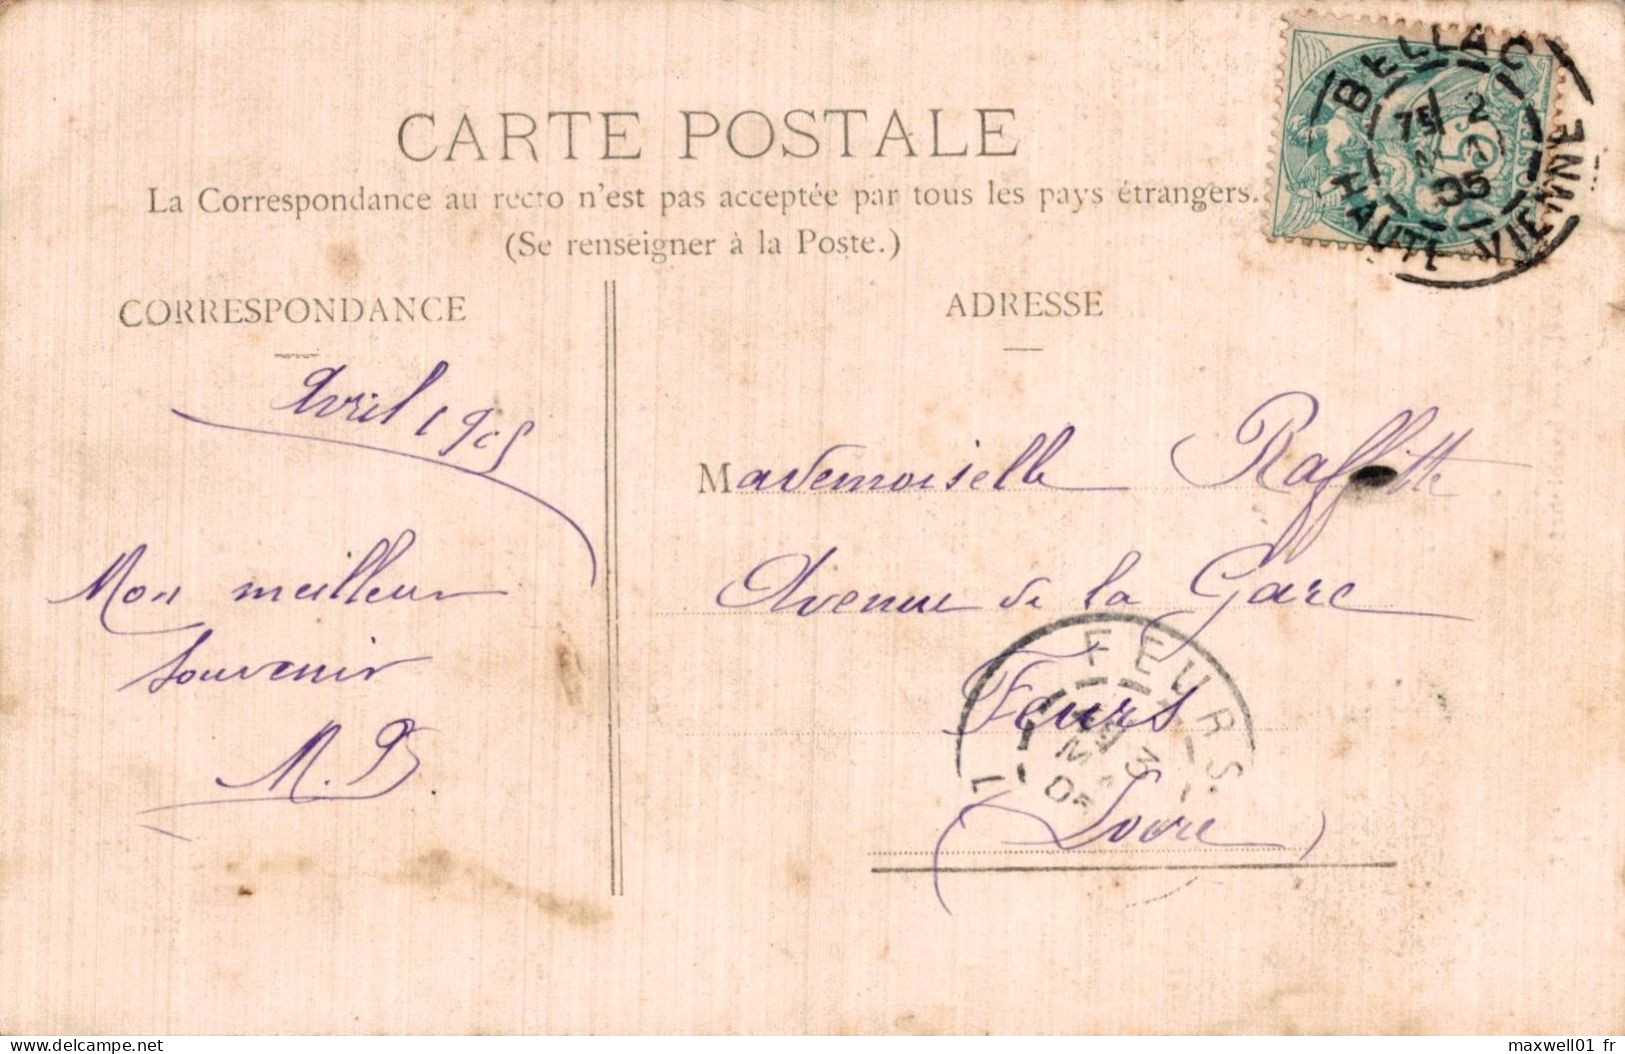 CARTE POSTALE
La Correspondance au recto n'est pas acceptée par tous les pays étrangers.
(Se renseigner à la Poste.)
BELLAC
2
05
HAUTE VIENNE
5
CORRESPONDANCE
Avril 1905
Mon meilleur
souvenir
M. B.
ADRESSE
Mademoiselle Raffitte
Avenue de la Gare
Feurs
(Loire)
FEURS
3
05
delcampe.net
maxwell01 fr